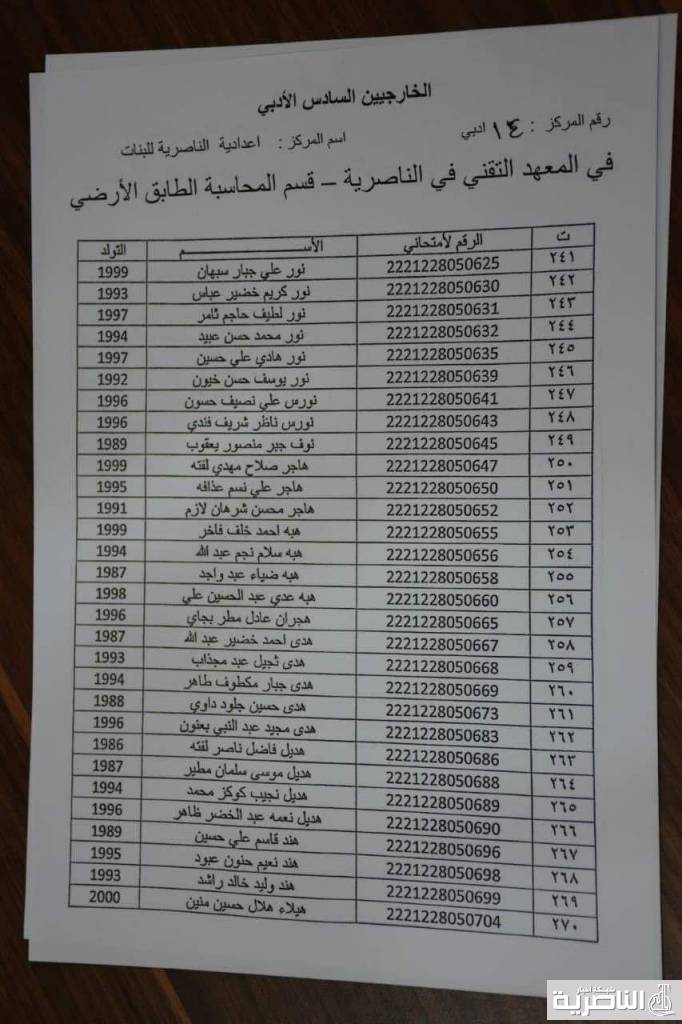 الخارجيين السادس الأدبي
رقم المركز : ١٤ ادبي اسم المركز : اعدادية الناصرية للبنات
في المعهد التقني في الناصرية – قسم المحاسبة الطابق الأرضي
ت الرقم لأمتحاني الأســـم التولد
٢٤١ 2221228050625 نور علي جبار سبهان 1999
٢٤٢ 2221228050630 نور كريم خضير عباس 1993
٢٤٣ 2221228050631 نور لطيف حاجم ثامر 1997
٢٤٤ 2221228050632 نور محمد حسن عبيد 1994
٢٤٥ 2221228050635 نور هادي علي حسين 1997
٢٤٦ 2221228050639 نور يوسف حسن خيون 1992
٢٤٧ 2221228050641 نورس علي نصيف حسون 1996
٢٤٨ 2221228050643 نورس ناظر شريف فندي 1996
٢٤٩ 2221228050645 نوف جبر منصور يعقوب 1989
٢٥٠ 2221228050647 هاجر صلاح مهدي لفته 1999
٢٥١ 2221228050650 هاجر علي نسم عذافه 1995
٢٥٢ 2221228050652 هاجر محسن شرهان لازم 1991
٢٥٣ 2221228050655 هبه احمد خلف فاخر 1999
٢٥٤ 2221228050656 هبه سلام نجم عبد الله 1994
٢٥٥ 2221228050658 هبه ضياء عبد واجد 1987
٢٥٦ 2221228050660 هبه عدي عبد الحسين علي 1998
٢٥٧ 2221228050665 هجران عادل مطر بجاي 1996
٢٥٨ 2221228050667 هدى احمد خضير عبد الله 1987
٢٥٩ 2221228050668 هدى ثجيل عبد مجذاب 1993
٢٦٠ 2221228050669 هدى جبار مكطوف طاهر 1994
٢٦١ 2221228050673 هدى حسين جلود داوي 1988
٢٦٢ 2221228050683 هدى مجيد عبد النبي بعنون 1996
٢٦٣ 2221228050686 هديل فاضل ناصر لفته 1986
٢٦٤ 2221228050688 هديل موسى سلمان مطير 1987
٢٦٥ 2221228050689 هديل نجيب كوكز محمد 1994
٢٦٦ 2221228050690 هديل نعمه عبد الخضر ظاهر 1996
٢٦٧ 2221228050696 هند قاسم علي حسين 1989
٢٦٨ 2221228050698 هند نعيم حنون عبود 1995
٢٦٩ 2221228050699 هند وليد خالد راشد 1993
٢٧٠ 2221228050704 هيلاء هلال حسين منين 2000
شبكة أخبار
الناصرية